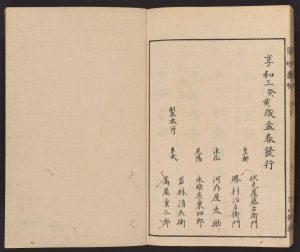 享和三癸亥歳孟春發行
皇都
伏見屋藤右衛門
勝村治右衛門
浪花
河内屋太助
尾陽
永樂屋東四郎
製本所
東武
若林清兵衛
蔦屋重三郎